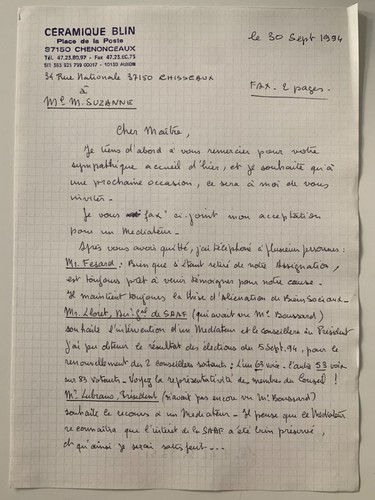 CÉRAMIQUE BLIN
Place de la Poste
37150 CHENONCEAUX
Tél. 47.23. - Fax 47.23.
le 30 Sept 1994
34 Rue Nationale 37150 CHISSEAUX
à
FAX - 2 pages -
Mᵉ M. SUZANNE
Cher Maître,
Je tiens d'abord à vous remercier pour votre
sympathique accueil d'hier, et je souhaite qu'à
une prochaine occasion, ce sera à moi de vous
inviter -
Je vous "fax" ci-joint mon acceptation
pour un Médiateur -
Après vous avoir quitté, j'ai téléphoné à plusieurs personnes :
Mr. Fesard : Bien que s'étant retiré de notre Assignation,
est toujours prêt à venir témoigner pour notre cause -
Il maintient toujours la thèse d'Aliénation de Biens Sociaux -
Mr. Lloret, de SAAF (qui avait vu Mr. Boussard)
souhaite l'intervention d'un Médiateur et le conseillera au Président
J'ai pu obtenir le résultat des élections du 5 Sept. 94, pour le
renouvellement des 2 conseillers sortants : L'un 63 voix - l'autre 53 voix
sur 83 votants - Voyez la représentativité des membres du Conseil !
Mr Lubrano, Président (n'avait pas encore vu Mr. Boussard)
souhaite le recours à un Médiateur - Il pense que le Médiateur
reconnaîtra que l'intérêt de la SAAF a été bien préservé,
et qu'ainsi je serai satisfait - - -